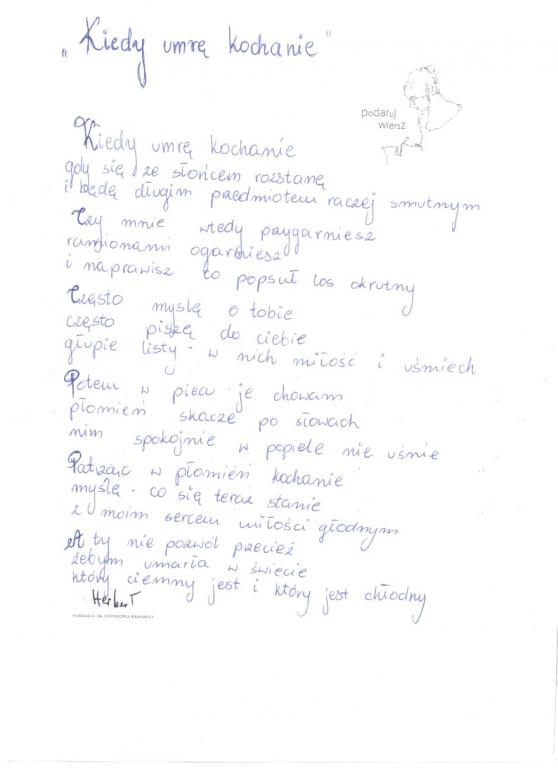 „Kiedy umrę kochanie"
podaruj
wiersz
Kiedy umrę kochanie
gdy się ze słońcem rozstanę
i będę długim przedmiotem raczej smutnym
Czy mnie wtedy przygarniesz
ramionami ogarniesz
i naprawisz to popsuł los okrutny
Często myślę o tobie
często piszę do ciebie
głupie listy - w nich miłość i uśmiech
Potem w piecu je chowam
płomień skacze po słowach
nim spokojnie w popiele nie uśnie
Patrząc w płomień kochanie
myślę - co się teraz stanie
z moim sercem miłości głodnym
A ty nie pozwól przecież
żebym umarła w świecie
który ciemny jest i który jest chłodny
Herbert
FUNDACJA IM. ZBIGNIEWA HERBERTA